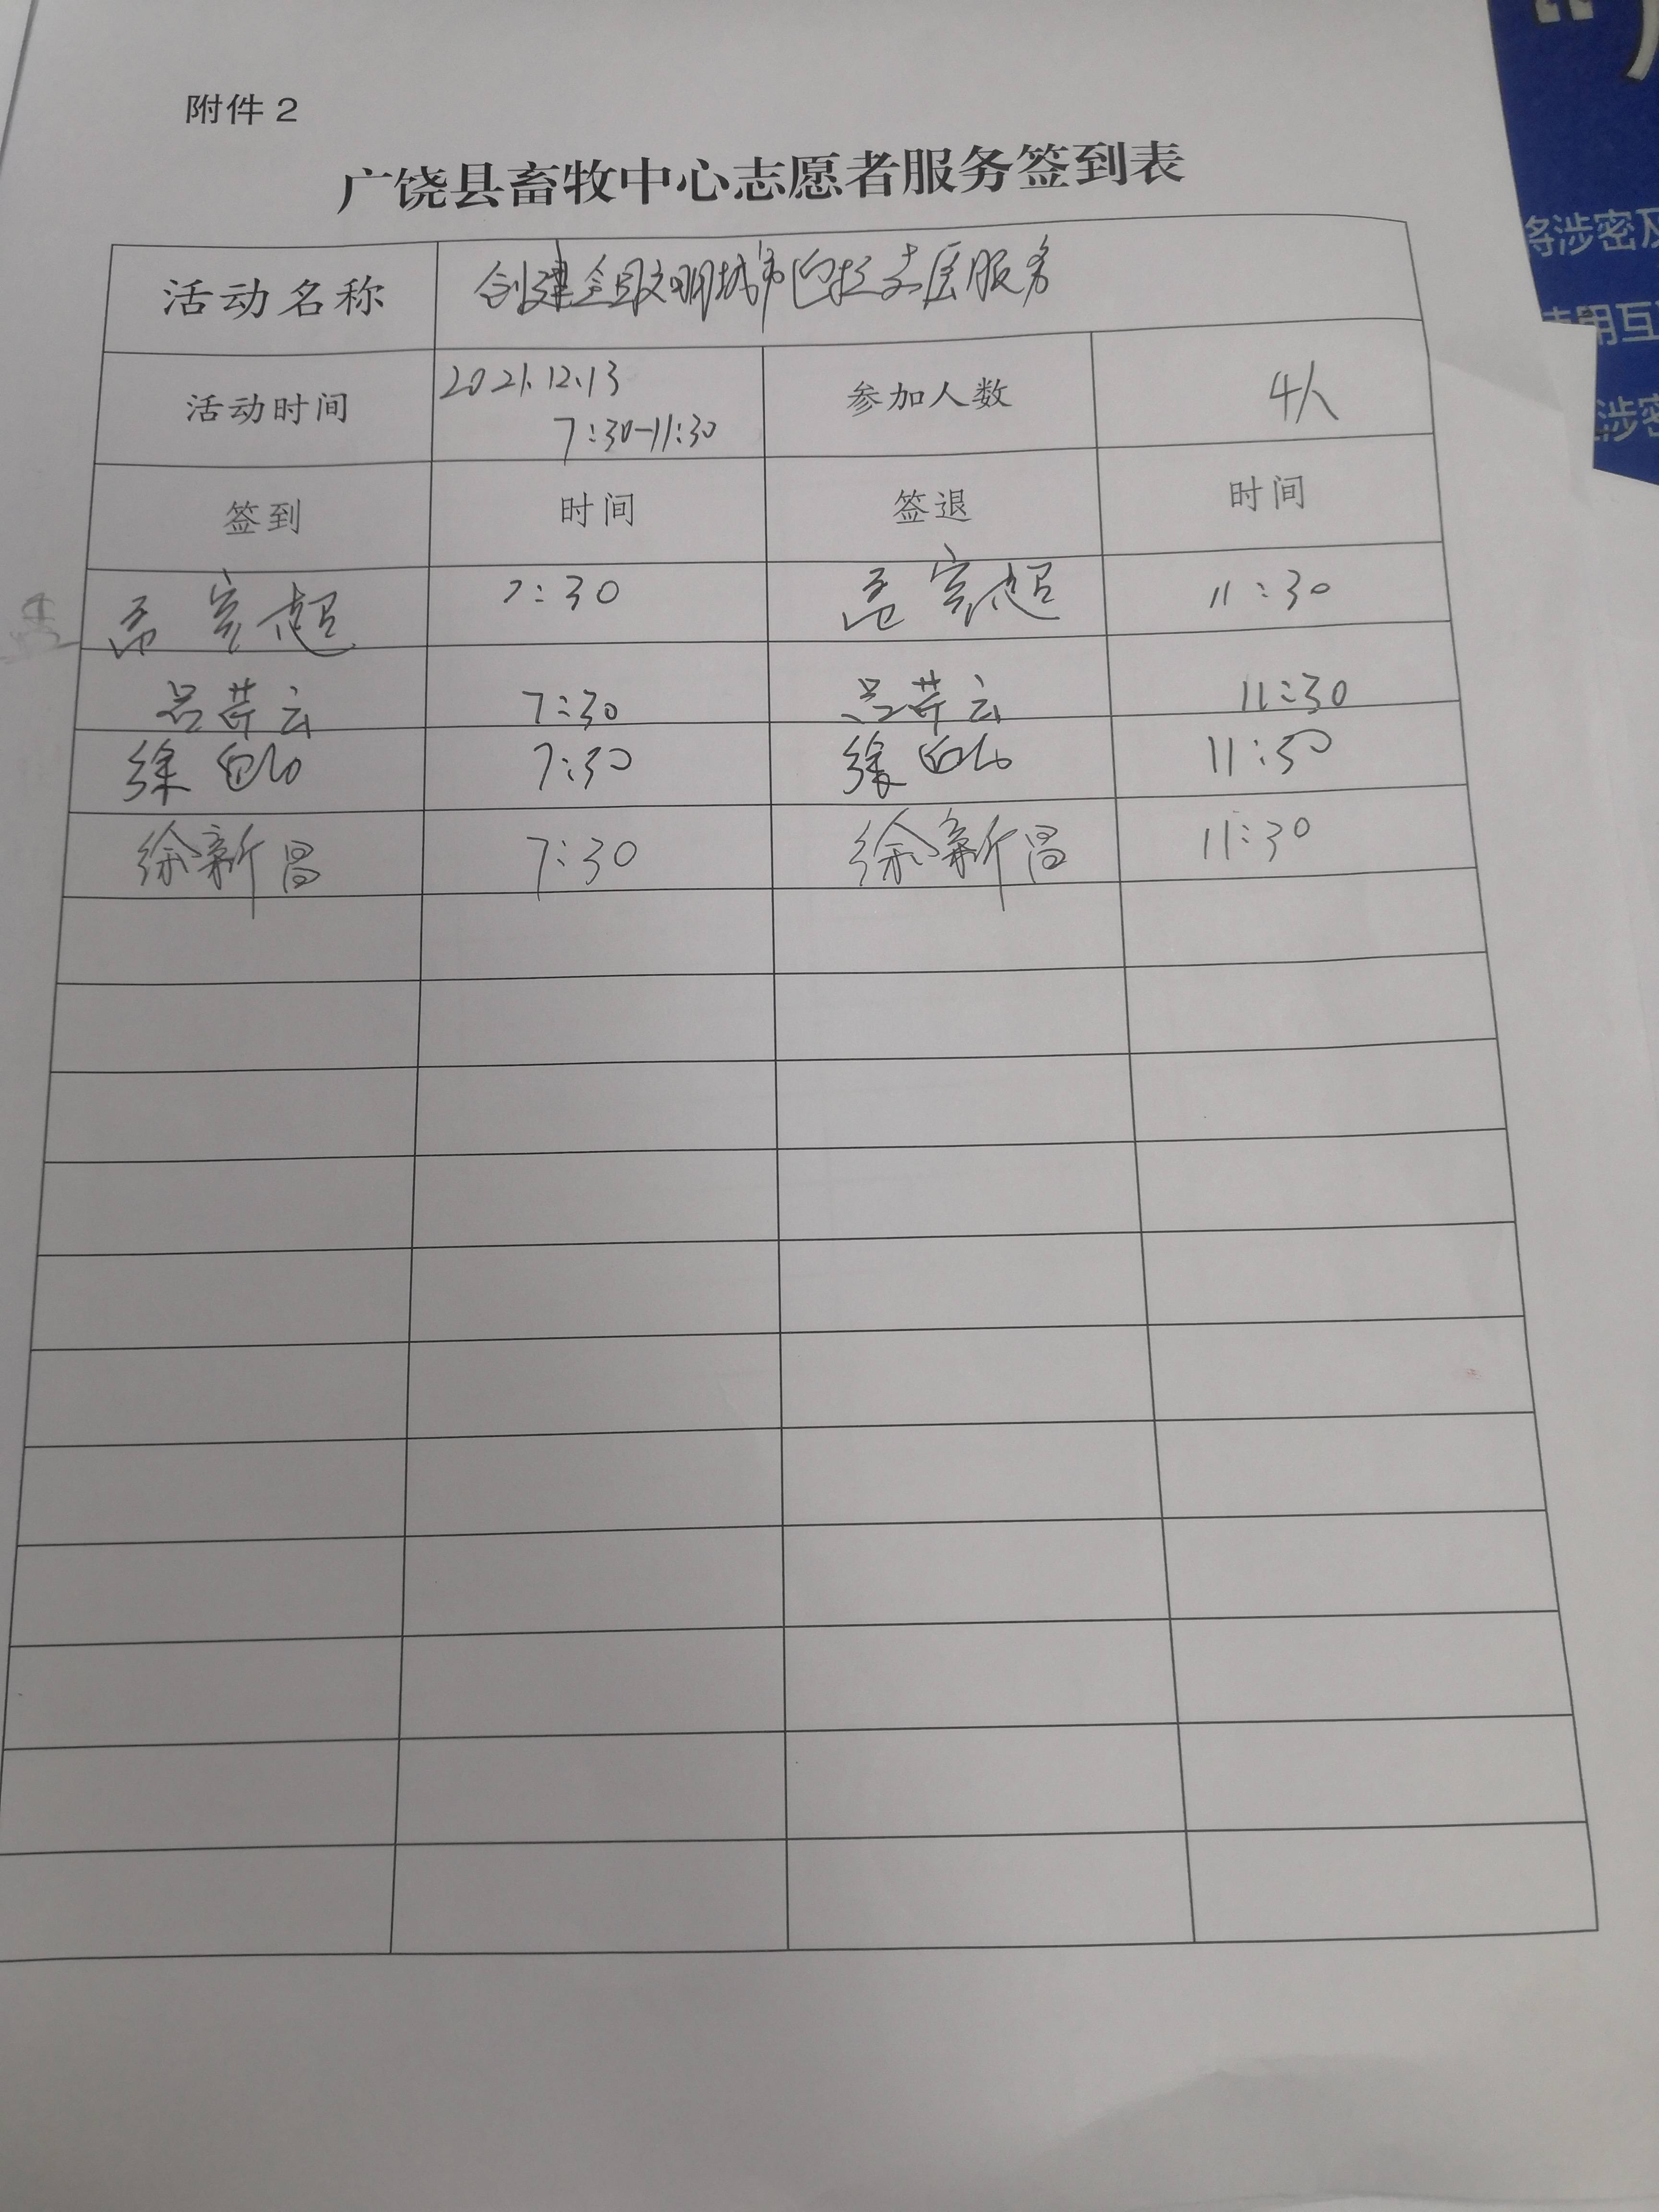 附件 2
广饶县畜牧中心志愿者服务签到表
活动名称 创建全国文明城市包挂志愿服务
活动时间 2021.12.13 参加人数 4人
7:30-11:30
签到 时间 签退 时间
7:30 11:30
吕芹云 7:30 吕芹云 11:30
徐 7:30 徐 11:30
徐新昌 7:30 徐新昌 11:30
将涉密及
使用互
涉密